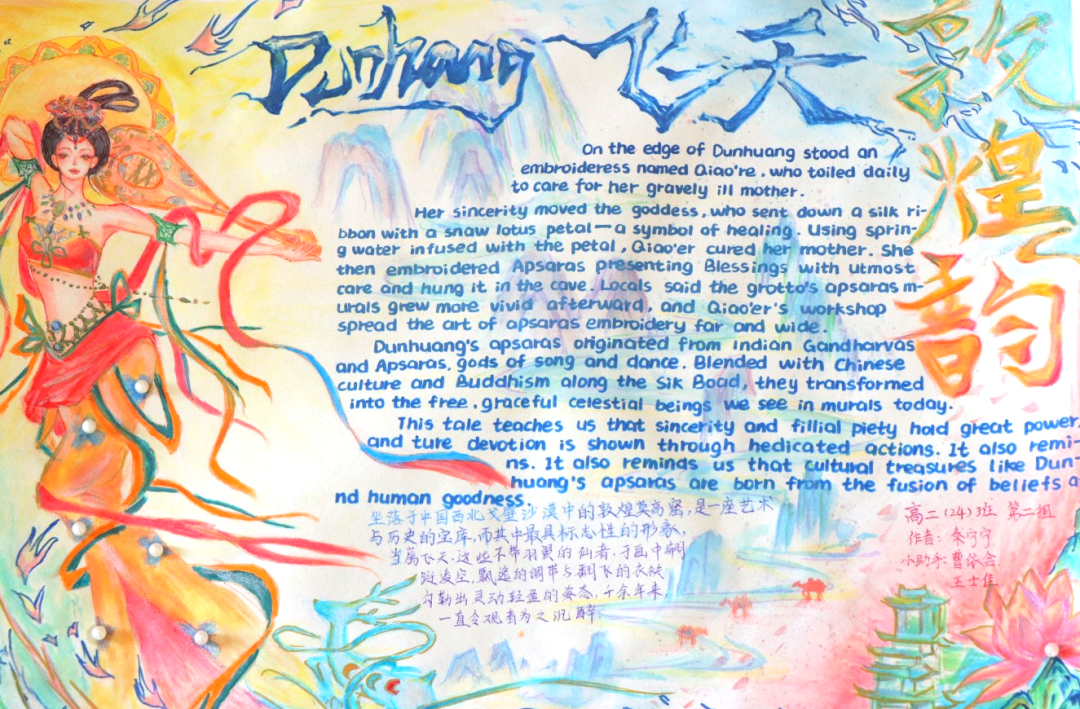 Dunhuang 飞天
敦煌韵
On the edge of Dunhuang stood an
embroideress named Qiao're, who toiled daily
to care for her gravely ill mother.
Her sincerity moved the goddess, who sent down a silk ri-
bbon with a snaw lotus petal—a symbol of healing. Using sprin-
g water infused with the petal, Qiao'er cured her mother. She
then embroidered Apsaras presenting Blessings with utmost
care and hung it in the cave. Locals said the grotto's apsaras m-
urals grew more vivid afterward, and Qiao'er's workshop
spread the art of apsaras embroidery far and wide.
Dunhuang's apsaras originated from Indian Gandharvas
and Apsaras, gods of song and dance. Blended with Chinese
culture and Buddhism along the Sik Boad, they transformed
into the free, graceful celestial beings we see in murals today.
This tale teaches us that sincerity and fillial piety hold great power,
and ture devotion is shown through hedicated actions. It also remi-
ns. It also reminds us that cultural treasures like Dun-
huang's apsaras are born from the fusion of beliefs a
nd human goodness.
坐落于中国西北戈壁沙漠中的敦煌莫高窟,是一座艺术
与历史的宝库,而其中最具标志性的形象,
当属飞天.这些不带羽翼的仙者,于画中翩
跹凌空,飘逸的绸带与翻飞的衣袂
勾勒出灵动轻盈的姿态,千余年来,
一直令观者为之沉醉.
高二(24)班 第二组
作者: 秦宁宁
小助手: 曹依会
王士佳